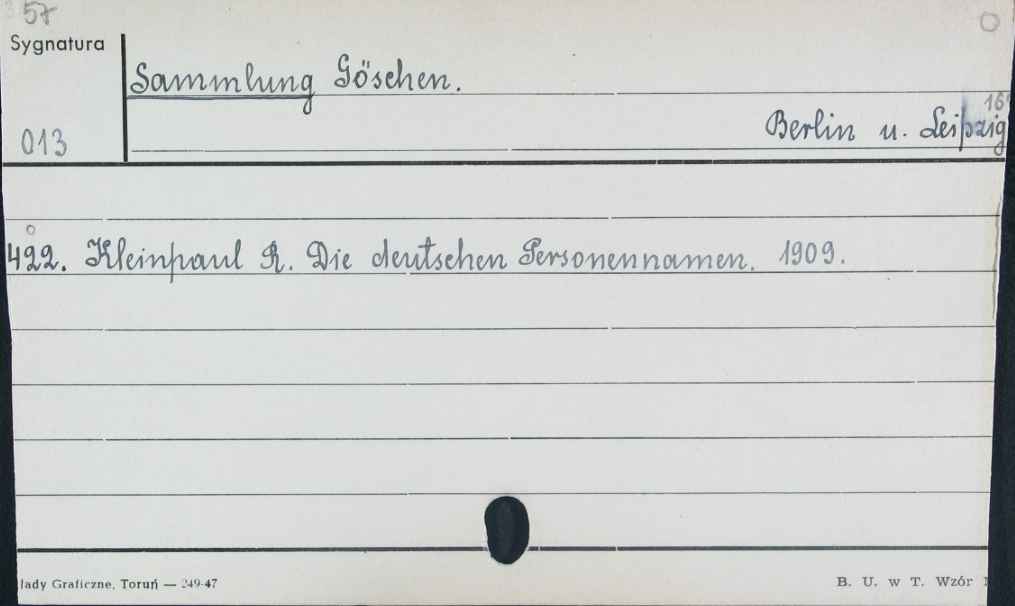 57
Sygnatura
Sammlung Göschen.
16°
Berlin u. Leipzig
013
422. Kleinpaul R. Die deutschen Personennamen. 1909.
łady Graficzne, Toruń — 249-47
B. U. w T. Wzór